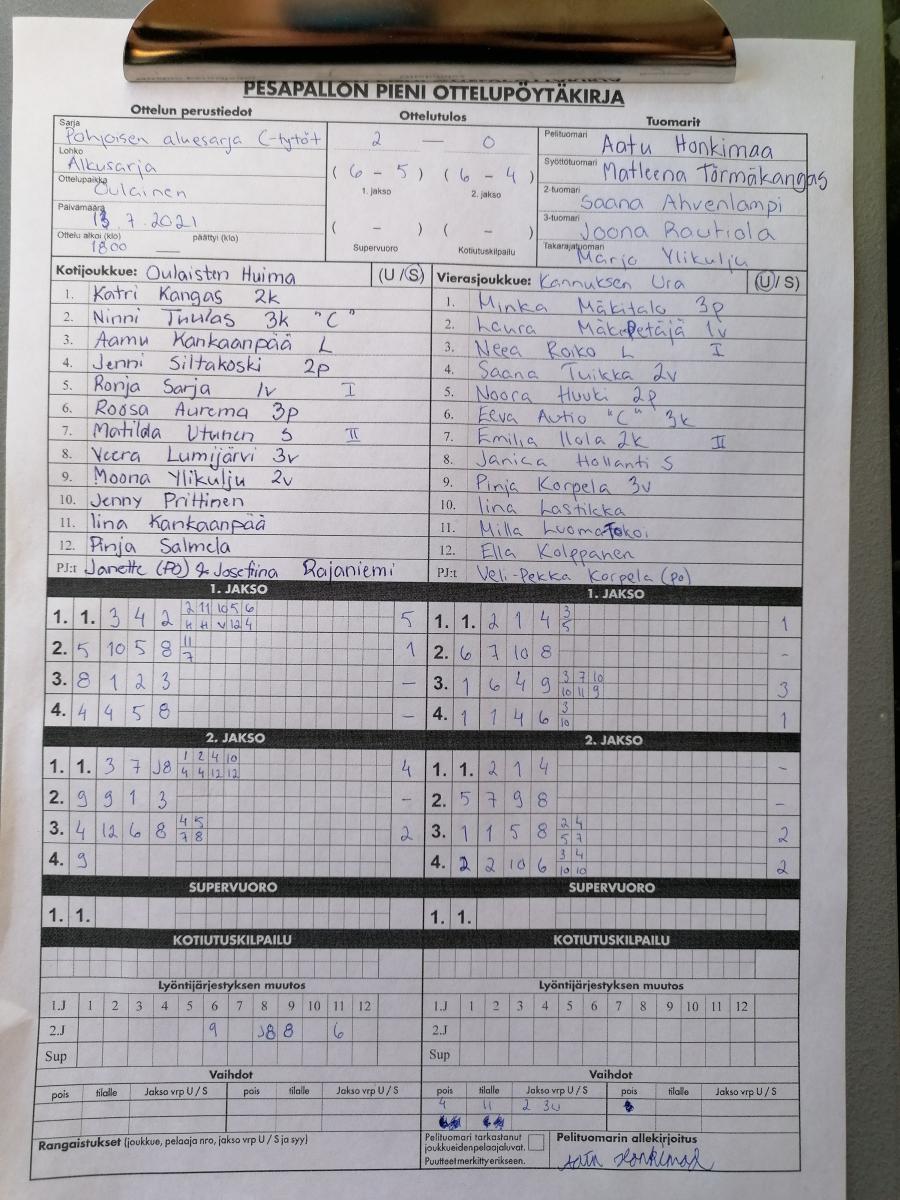 PESÄPALLON PIENI OTTELUPÖYTÄKIRJA
Ottelun perustiedot Ottelutulos Tuomarit
Sarja
Pohjoisen aluesarja C-tytöt
Lohko
Alkusarja
Ottelupaikka
Oulainen
Päivämäärä
13.7.2021
Ottelu alkoi (klo) päättyi (klo)
1800
2 — 0
( 6 - 5 ) ( 6 - 4 )
1. jakso 2. jakso
( - ) ( - )
Supervuoro Kotiutuskilpailu
Pelituomari Aatu Honkimaa
Syöttötuomari Matleena Törmäkangas
2-tuomari Saana Ahvenlampi
3-tuomari Joona Rautiola
Takarajatuomari Marjo Ylikulju
Kotijoukkue: Oulaisten Huima (U/S)
1. Katri Kangas 2k
2. Ninni Tuulas 3k "C"
3. Aamu Kankaanpää L
4. Jenni Siltakoski 2p
5. Ronja Sarja 1v I
6. Roosa Aurema 3p
7. Matilda Utunen S II
8. Veera Lumijärvi 3v
9. Moona Ylikulju 2v
10. Jenny Prittinen
11. Iina Kankaanpää
12. Pinja Salmela
PJ:t Janette (po) & Josefiina Rajaniemi
Vierasjoukkue: Kannuksen Ura (U/S)
1. Minka Mäkitalo 3p
2. Laura Mäkipetäjä 1v
3. Neea Roiko L I
4. Saana Tuikka 2v
5. Noora Huuki 2p
6. Eeva Autio "C" 3k
7. Emilia Ilola 2k II
8. Janica Hollanti S
9. Pinja Korpela 3v
10. Iina Lastikka
11. Milla Luomatokoi
12. Ella Kolppanen
PJ:t Veli-Pekka Korpela (po)
1. JAKSO
1. 1. 3 4 2 2 11 10 5 6 5
H H V 12 4
2. 5 10 5 8 11 1
7
3. 8 1 2 3 –
4. 4 4 5 8 –
1. JAKSO
1. 1. 2 1 4 3 1
5
2. 6 7 10 8 -
3. 1 6 4 9 3 7 10 3
10 11 9
4. 1 1 4 6 3 1
10
2. JAKSO
1. 1. 3 7 J8 1 2 4 10 4
4 4 12 12
2. 9 9 1 3 –
3. 4 12 6 8 4 5 2
7 8
4. 9
2. JAKSO
1. 1. 2 1 4 -
2. 5 7 9 8 -
3. 1 1 5 8 2 4 2
5 7
4. 2 2 10 6 3 4 2
10 10
SUPERVUORO SUPERVUORO
1. 1. 1. 1.
KOTIUTUSKILPAILU KOTIUTUSKILPAILU
Lyöntijärjestyksen muutos Lyöntijärjestyksen muutos
1.J 1 2 3 4 5 6 7 8 9 10 11 12 1.J 1 2 3 4 5 6 7 8 9 10 11 12
2.J 9 J8 8 6 2.J
Sup Sup
Vaihdot Vaihdot
pois tilalle Jakso vrp U / S pois tilalle Jakso vrp U / S pois tilalle Jakso vrp U / S pois tilalle Jakso vrp U / S
4 11 2 3U
Rangaistukset (joukkue, pelaaja nro, jakso vrp U / S ja syy)
Pelituomari tarkastanut
joukkueiden pelaajaluvat.
Puutteet merkitty erikseen.
Pelituomarin allekirjoitus
Aatu Honkimaa